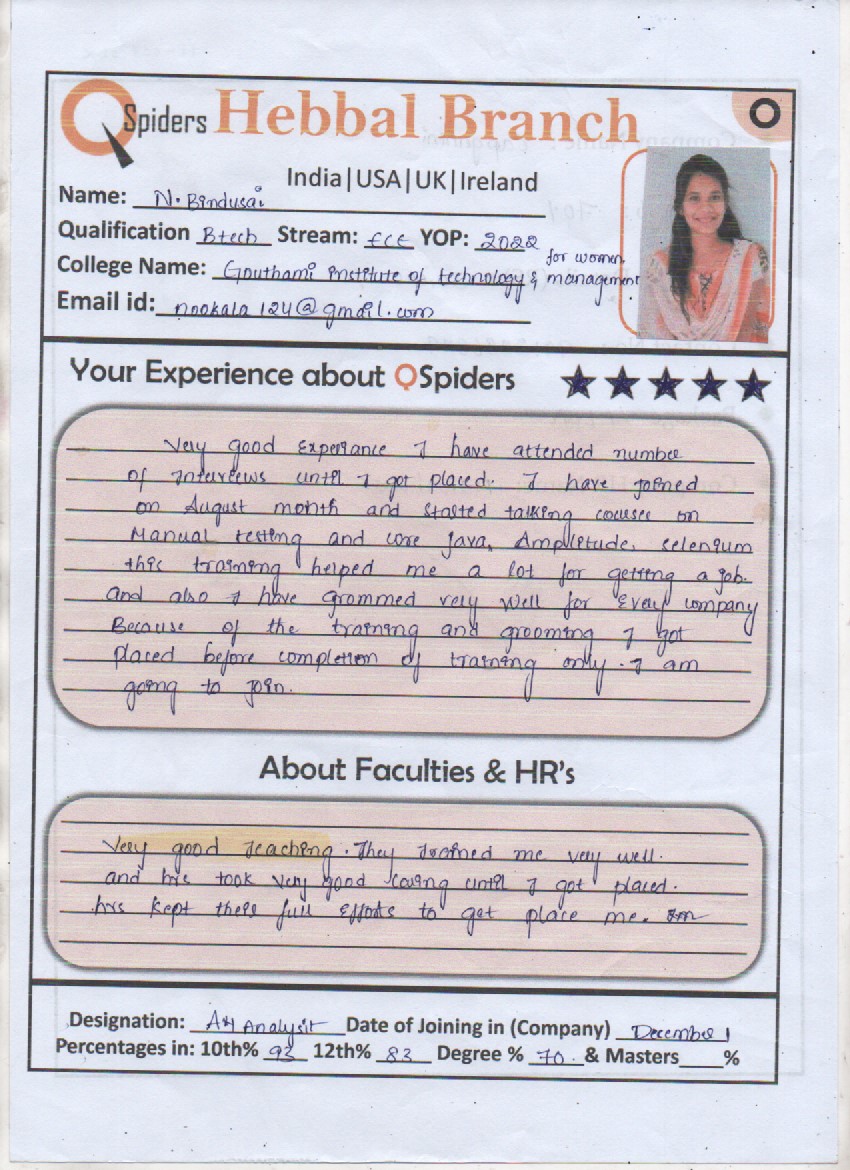 QSpiders Hebbal Branch
India|USA|UK|Ireland
Name: N. Bindusai
Qualification Btech Stream: ECE YOP: 2022
for women
College Name: Gouthami institute of technology & management
Email id: nookala124@gmail.com
Your Experience about QSpiders
Very good Experiance I have attended number
of Interviews until I got placed. I have joined
on August month and started talking courses on
Manual testing and core java, Amplitude, selenium
this training helped me a lot for getting a job.
and also I have grommed very well for Every company
Because of the training and grooming I got
placed before completion of training only. I am
going to join.
About Faculties & HR's
Very good Teaching. They Trained me very well.
and hrs took very good caring until I got placed.
hrs kept there full Efforts to get place me.
Designation: Analysit Date of Joining in (Company) December 1
Percentages in: 10th% 92 12th% 83 Degree % 70. & Masters____%